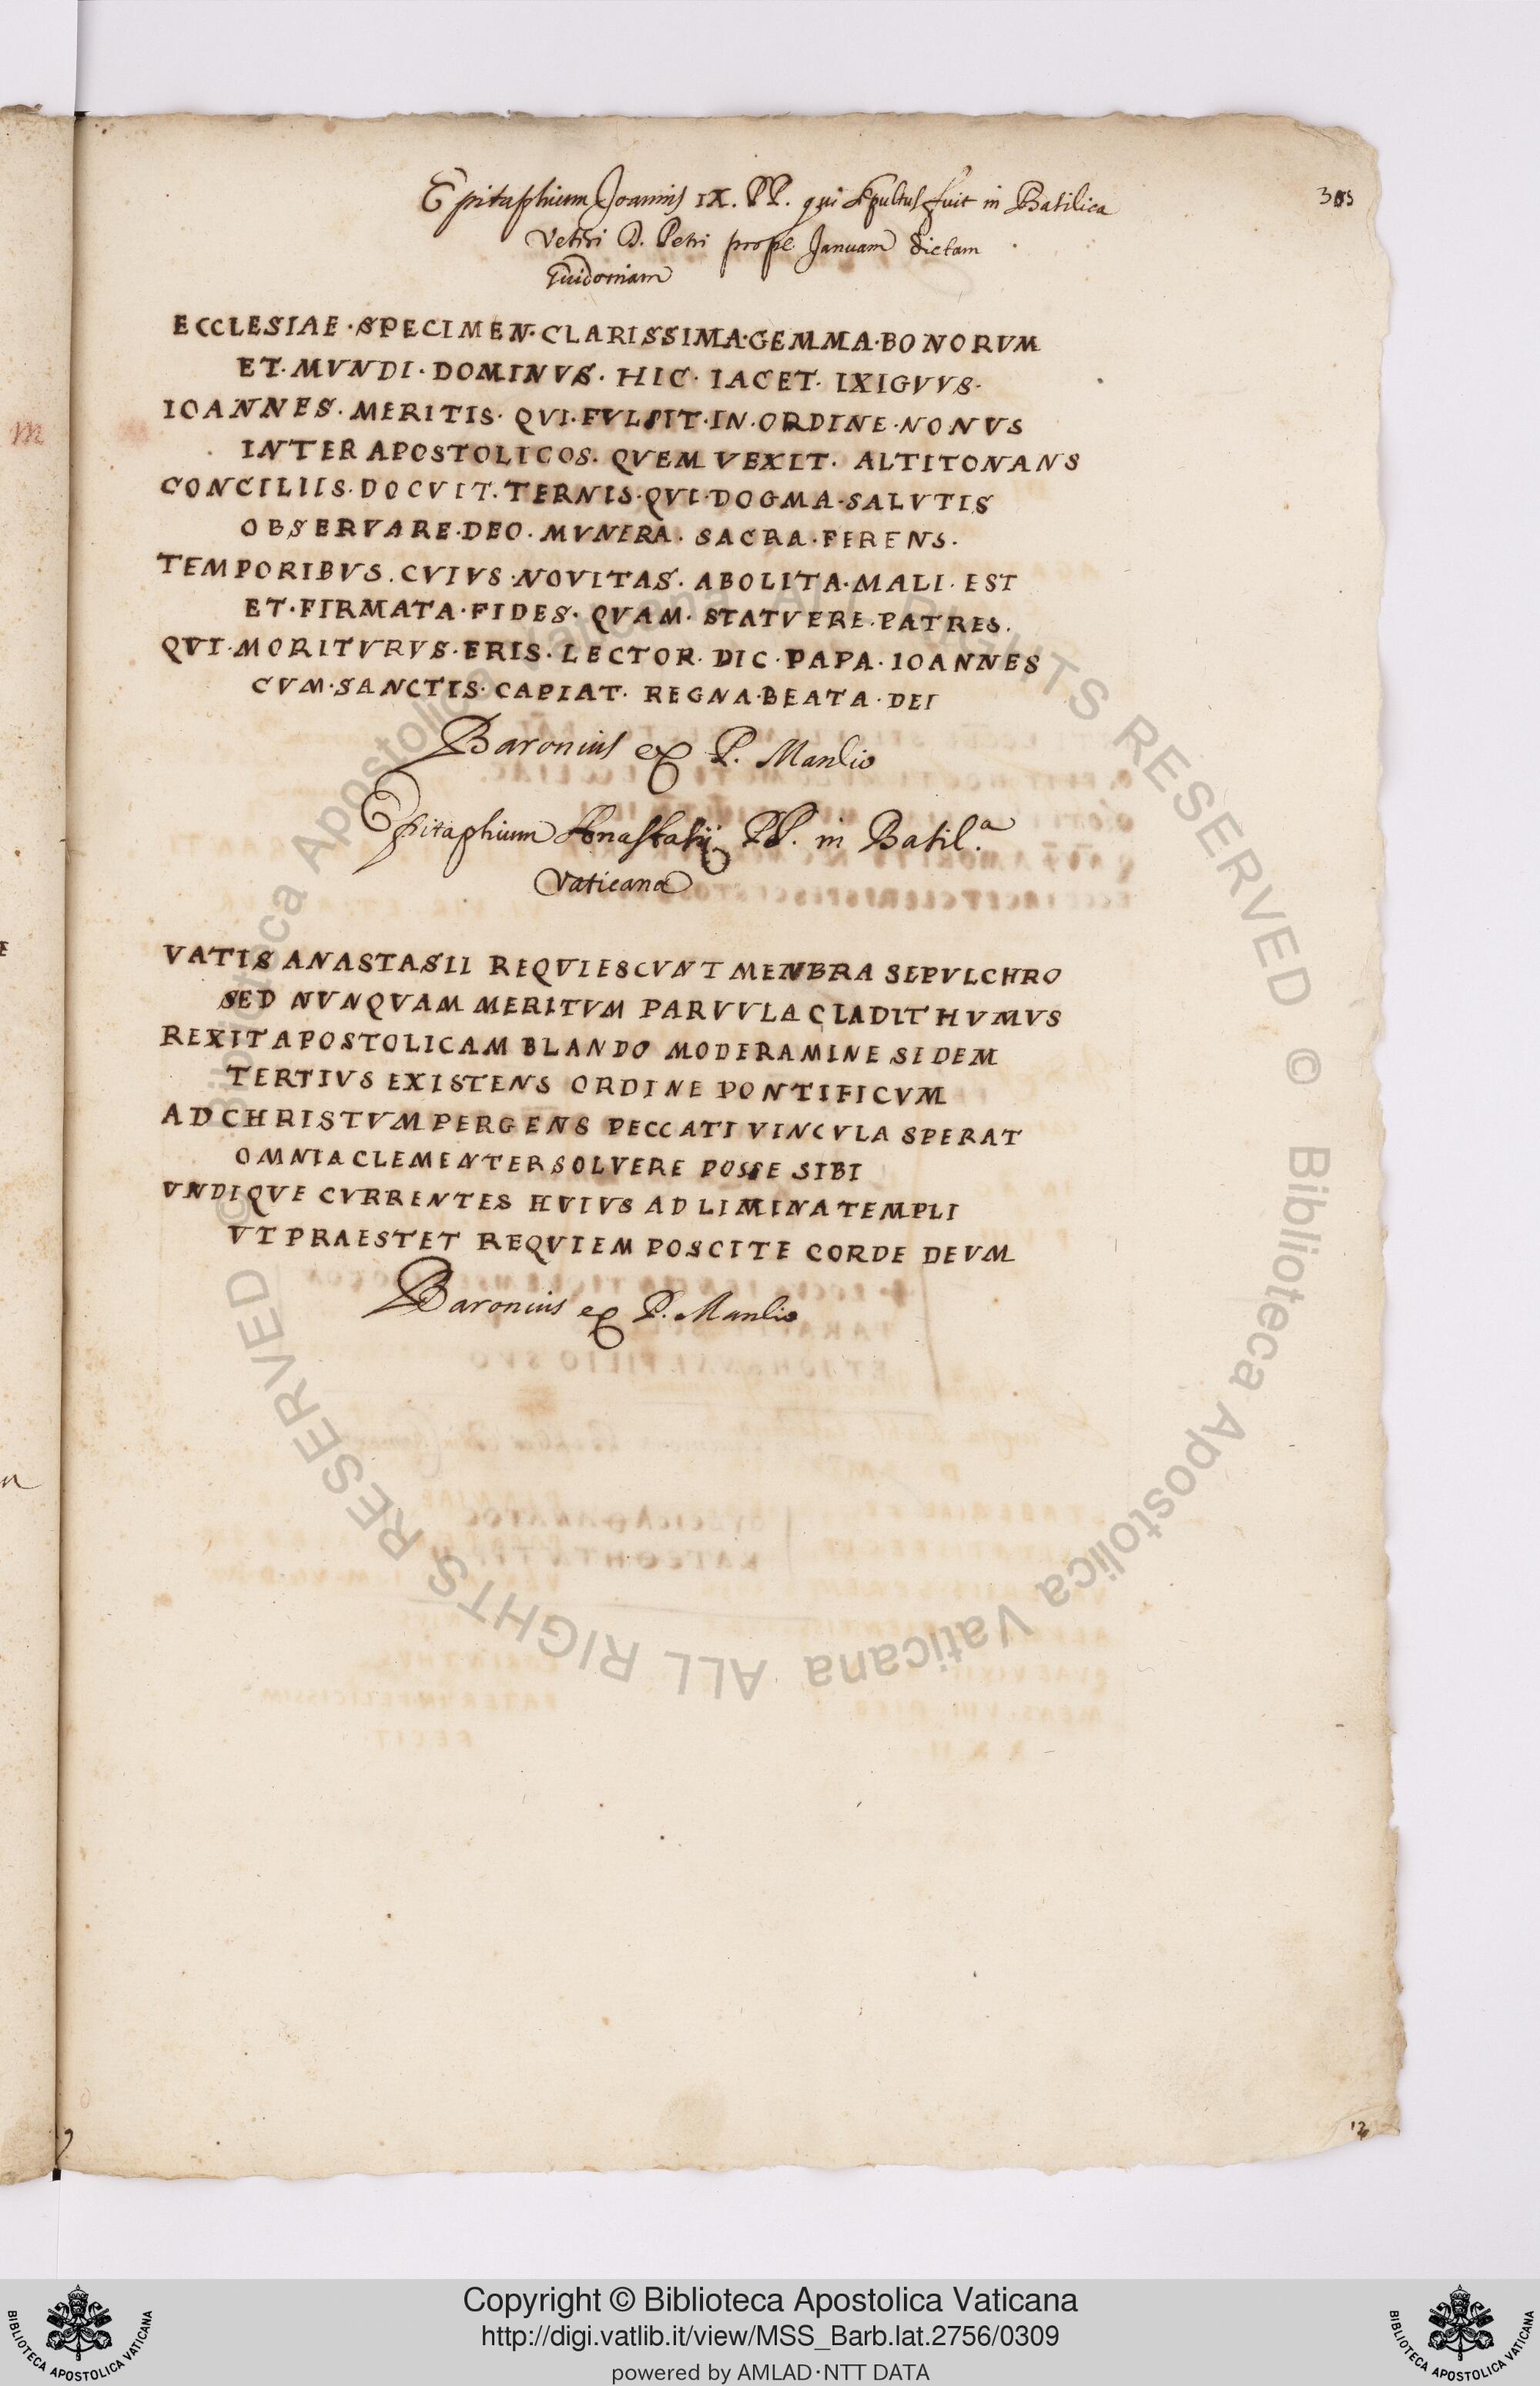 305
Epitaphium Joannis IX. PP. qui sepultus fuit in Basilica
Veteri D. Petri prope Januam dictam
Guidoniam
ECCLESIAE·SPECIMEN·CLARISSIMA·GEMMA·BONORVM
ET·MVNDI·DOMINVS·HIC·IACET·IXIGVVS·
IOANNES·MERITIS·QVI·FVLSIT·IN·ORDINE·NONVS
INTER APOSTOLICOS·QVEM VEXIT·ALTITONANS
CONCILIIS·DOCVIT·TERNIS·QVI·DOGMA·SALVTIS
OBSERVARE·DEO·MVNERA·SACRA·FERENS·
TEMPORIBVS·CVIVS·NOVITAS·ABOLITA·MALI·EST
ET·FIRMATA·FIDES·QVAM·STATVERE·PATRES·
QVI·MORITVRVS·ERIS·LECTOR·DIC·PAPA·IOANNES
CVM·SANCTIS·CAPIAT·REGNA·BEATA·DEI
Baronius ex P. Manlio
Epitaphium Anastasij PP. in Basil.a
Vaticana
VATIS ANASTASII REQVIESCVNT MENBRA SEPVLCHRO
SED NVNQVAM MERITVM PARVVLA CLADIT HVMVS
REXIT APOSTOLICAM BLANDO MODERAMINE SEDEM
TERTIVS EXISTENS ORDINE PONTIFICVM
AD CHRISTVM PERGENS PECCATI VINCVLA SPERAT
OMNIA CLEMENTER SOLVERE POSSE SIBI
VNDIQVE CVRRENTES HVIVS AD LIMINA TEMPLI
VT PRAESTET REQVIEM POSCITE CORDE DEVM
Baronius ex P. Manlio
© Biblioteca Apostolica Vaticana ALL RIGHTS RESERVED
© Biblioteca Apostolica Vaticana ALL RIGHTS RESERVED
Copyright © Biblioteca Apostolica Vaticana
http://digi.vatlib.it/view/MSS_Barb.lat.2756/0309
powered by AMLAD·NTT DATA
BIBLIOTECA APOSTOLICA VATICANA
BIBLIOTECA APOSTOLICA VATICANA